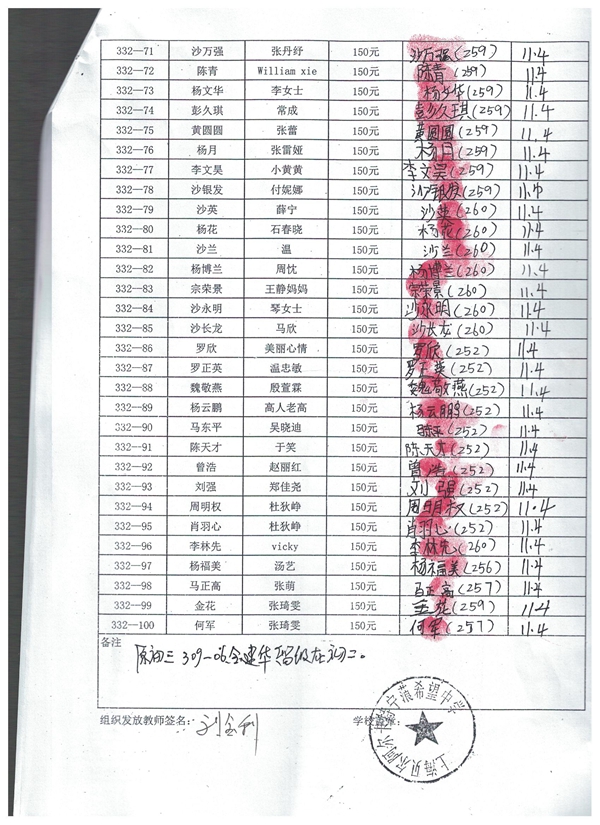 332—71 沙万强 张丹纾 150元 沙万强(259) 11.4
332—72 陈青 William xie 150元 陈青(259) 11.4
332—73 杨文华 李女士 150元 杨文华(259) 11.4
332—74 彭久琪 常成 150元 彭久琪(259) 11.4
332—75 黄圆圆 张蕾 150元 黄圆圆(259) 11.4
332—76 杨月 张雷娅 150元 杨月(259) 11.4
332—77 李文昊 小黄黄 150元 李文昊(259) 11.4
332—78 沙银发 付妮娜 150元 沙银发(259) 11.4
332—79 沙英 薛宁 150元 沙英(260) 11.4
332—80 杨花 石春晓 150元 杨花(260) 11.4
332—81 沙兰 温 150元 沙兰(260) 11.4
332—82 杨博兰 周忱 150元 杨博兰(260) 11.4
332—83 宗荣景 王静妈妈 150元 宗荣景(260) 11.4
332—84 沙永明 琴女士 150元 沙永明(260) 11.4
332—85 沙长龙 马欣 150元 沙长龙(260) 11.4
332—86 罗欣 美丽心情 150元 罗欣(252) 11.4
332—87 罗正英 温忠敏 150元 罗正英(252) 11.4
332—88 魏敬燕 殷萱霖 150元 魏敬燕(252) 11.4
332—89 杨云鹏 高人老高 150元 杨云鹏(252) 11.4
332—90 马东平 吴晓迪 150元 (252) 11.4
332—91 陈天才 于笑 150元 陈天才(252) 11.4
332—92 曾浩 赵丽红 150元 曾浩(252) 11.4
332—93 刘强 郑佳尧 150元 刘强(252) 11.4
332—94 周明权 杜狄峥 150元 周明权(252) 11.4
332—95 肖羽心 杜狄峥 150元 肖羽心(252) 11.4
332—96 李林先 vicky 150元 李林先(260) 11.4
332—97 杨福美 汤艺 150元 杨福美(256) 11.4
332—98 马正高 张萌 150元 马正高(257) 11.4
332—99 金花 张琦雯 150元 金花(259) 11.4
332—100 何军 张琦雯 150元 何军(257) 11.4
备注
原初三309-06金建华留级在初二。
组织发放教师签名: 学校盖章:
上海贝尔阿尔卡特宁蒗希望中学